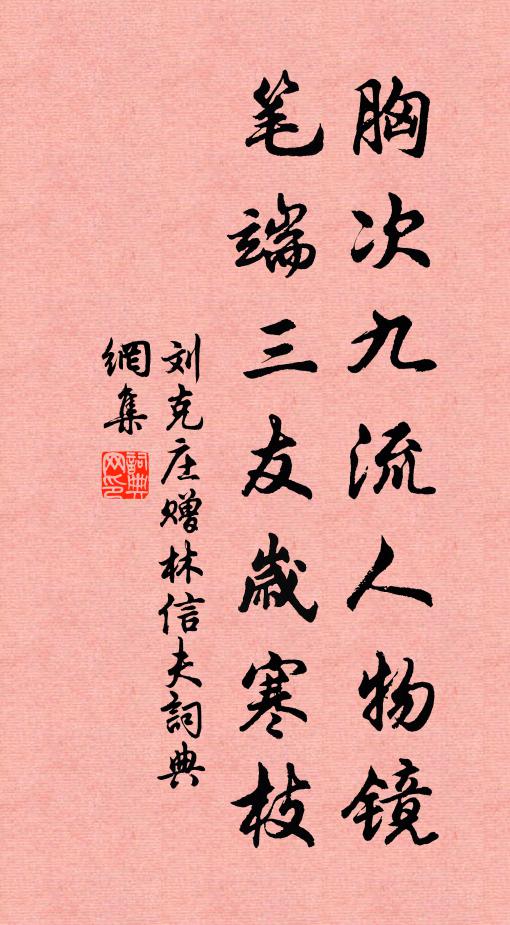 胸次九流人物镜
笔端三友岁寒枝
刘克庄赠林信夫詞典
網集
詞典网印